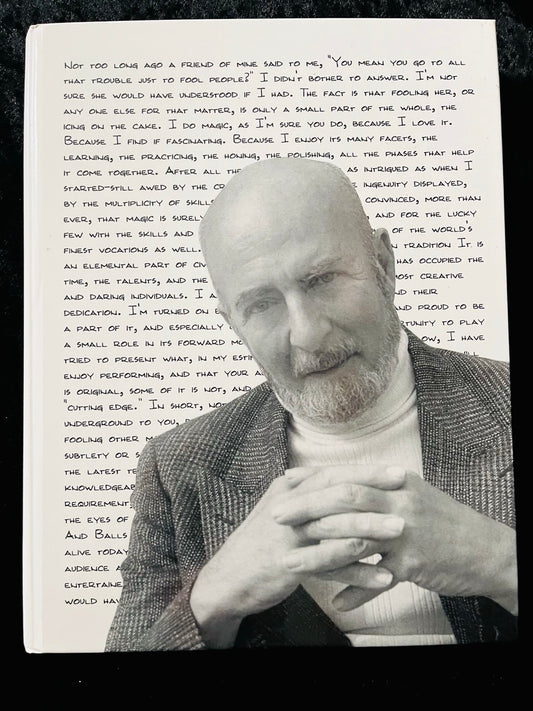 Not too long ago a friend of mine said to me, "You mean you go to all
that trouble just to fool people?" I didn't bother to answer. I'm not
sure she would have understood if I had. The fact is that fooling her, or
any one else for that matter, is only a small part of the whole, the
icing on the cake. I do magic, as I'm sure you do, because I love it.
Because I find if fascinating. Because I enjoy its many facets, the
learning, the practicing, the honing, the polishing, all the phases that help
it come together. After all the as intrigued as when I
started-still awed by the cr ingenuity displayed,
by the multiplicity of skills convinced, more than
ever, that magic is surely and for the lucky
few with the skills and of the world's
finest vocations as well. n tradition It is
an elemental part of civ has occupied the
time, the talents, and the most creative
and daring individuals. I a nd their
dedication. I'm turned on b nd proud to be
a part of it, and especially rtunity to play
a small role in its forward mo ow, I have
tried to present what, in my esti 'll
enjoy performing, and that your a
is original, some of it is not, and
"cutting edge." In short, no
underground to you,
fooling other m
subtlety or s
the latest te
knowledgeab
requirement
the eyes of
And Balls
alive today
audience a
entertaine
would hav